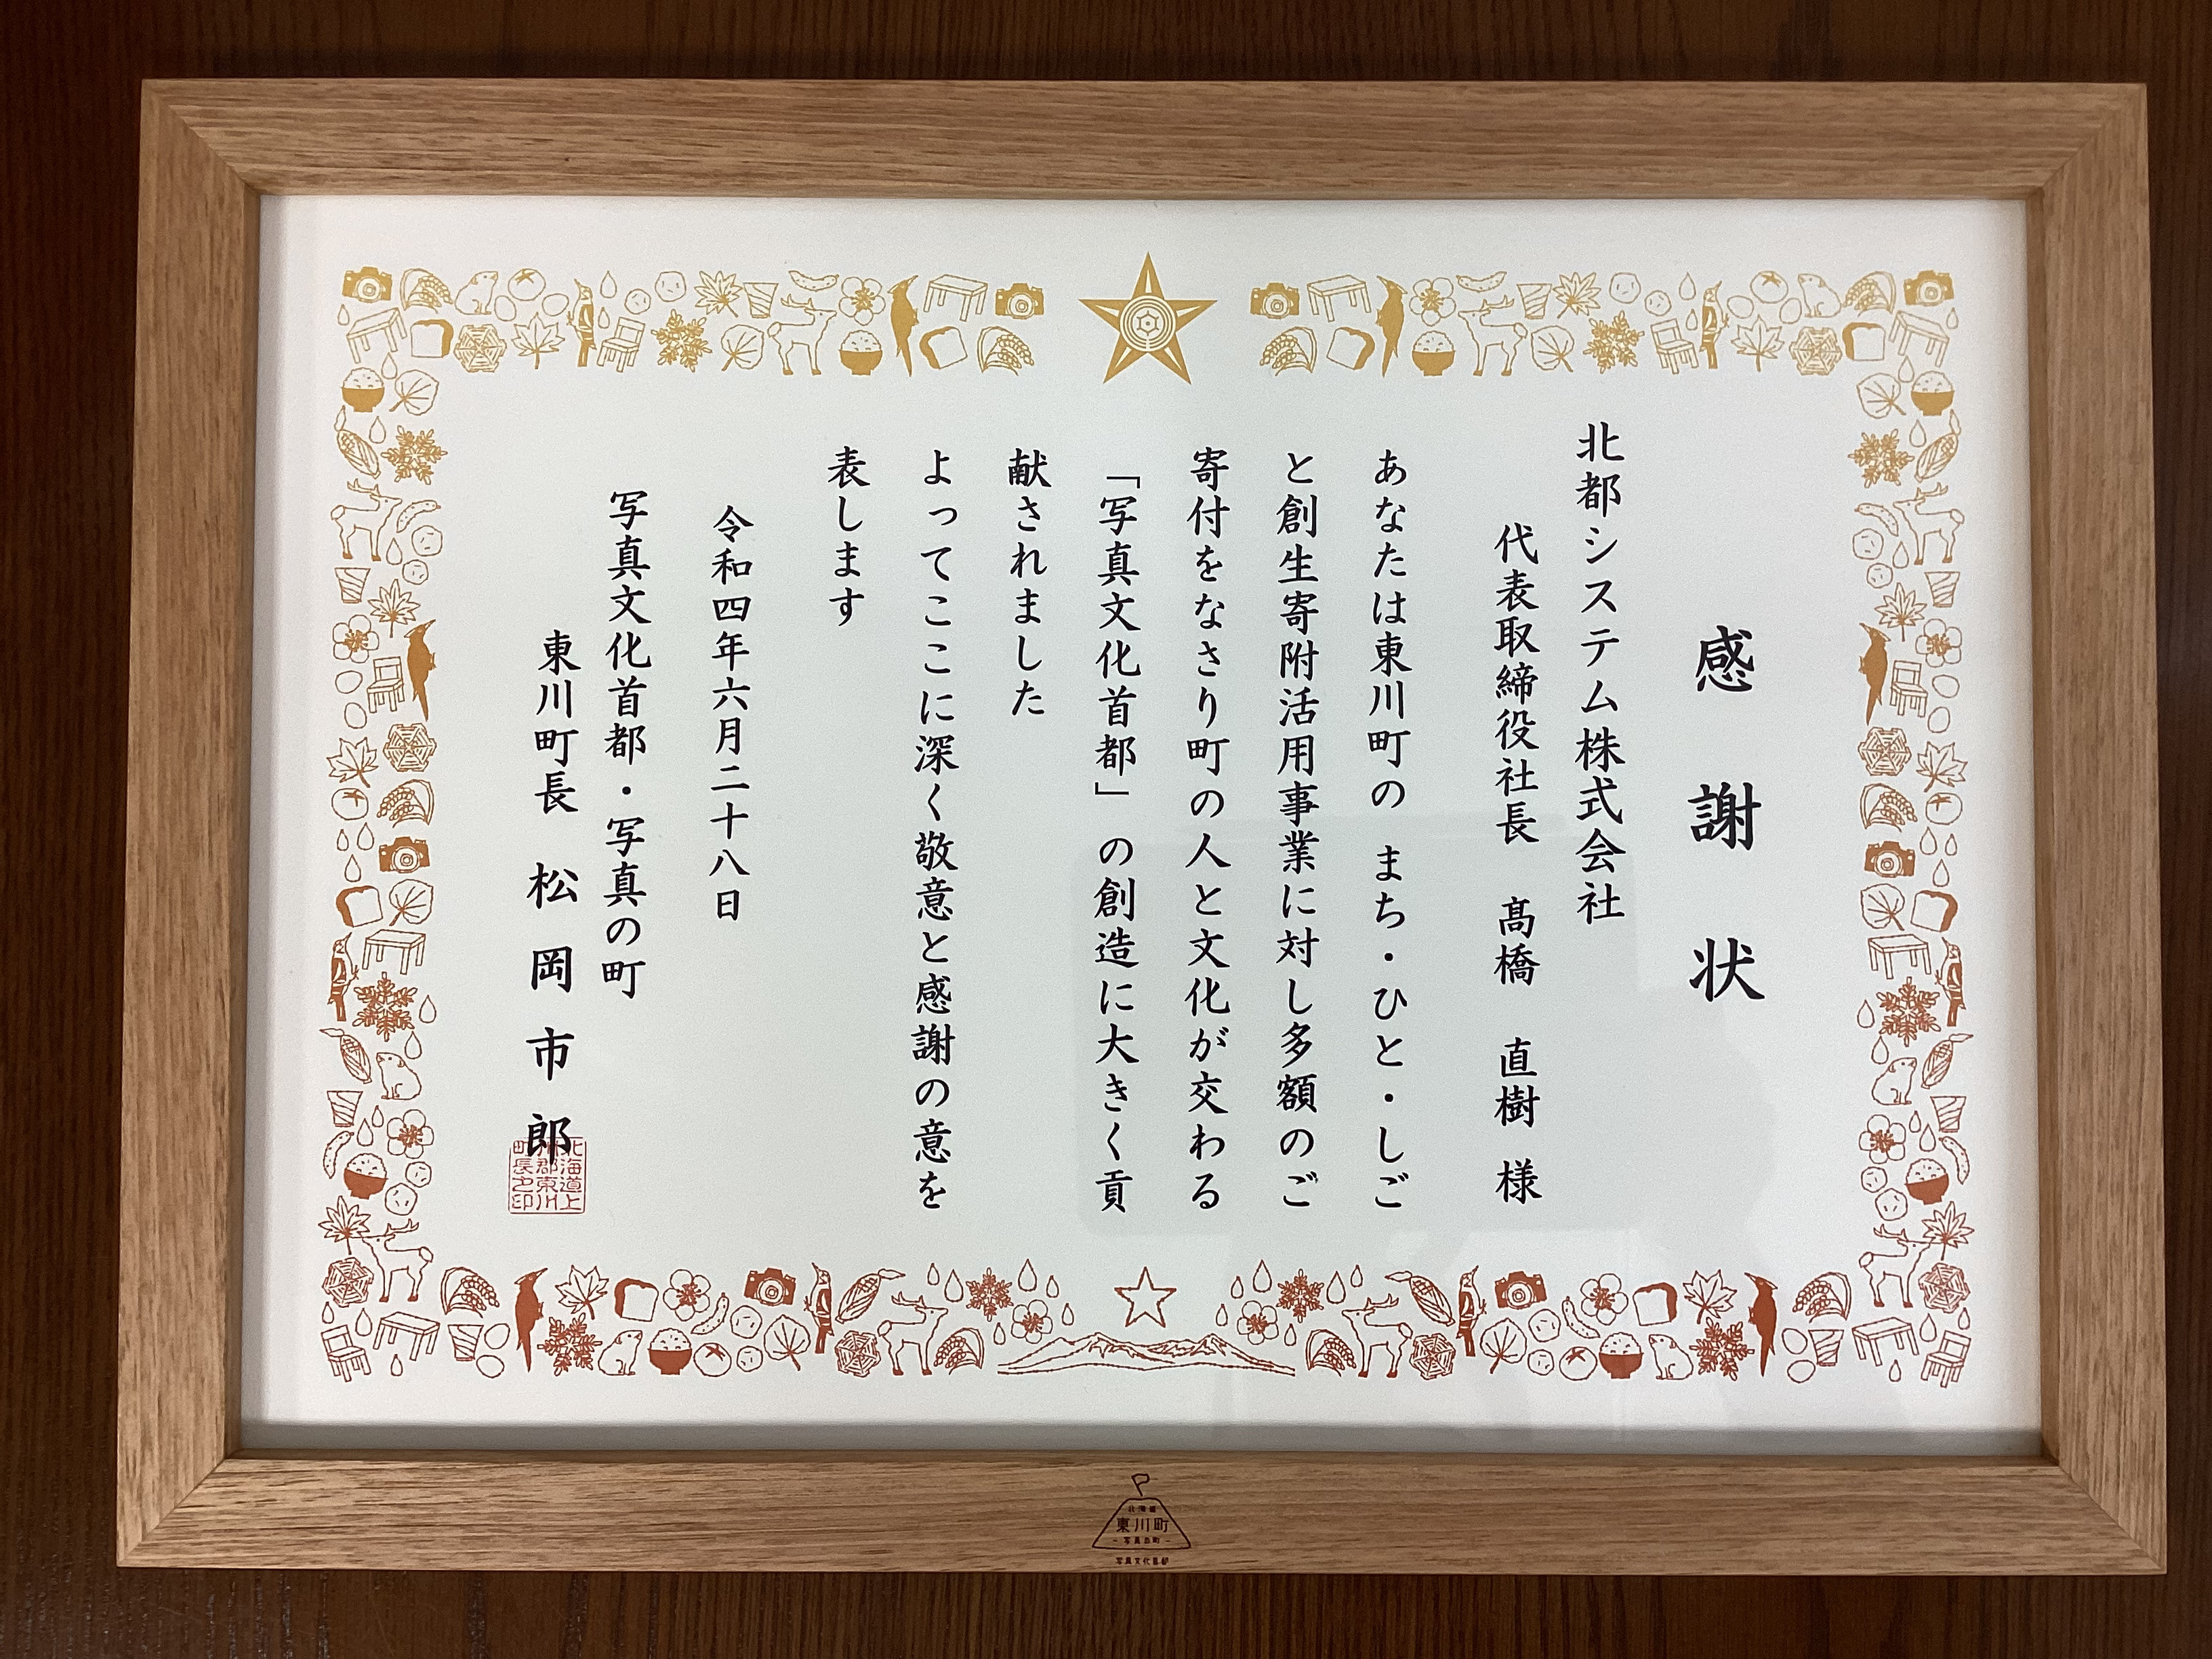 感謝状
北都システム株式会社
代表取締役社長 髙橋 直樹 様
あなたは東川町の まち・ひと・しご
と創生寄附活用事業に対し多額のご
寄付をなさり町の人と文化が交わる
「写真文化首都」の創造に大きく貢
献されました
よってここに深く敬意と感謝の意を
表します
令和四年六月二十八日
写真文化首都・写真の町
東川町長 松岡市郎
北海道上
川郡東川
町長之印
北海道
東川町
写真の町
写真文化首都